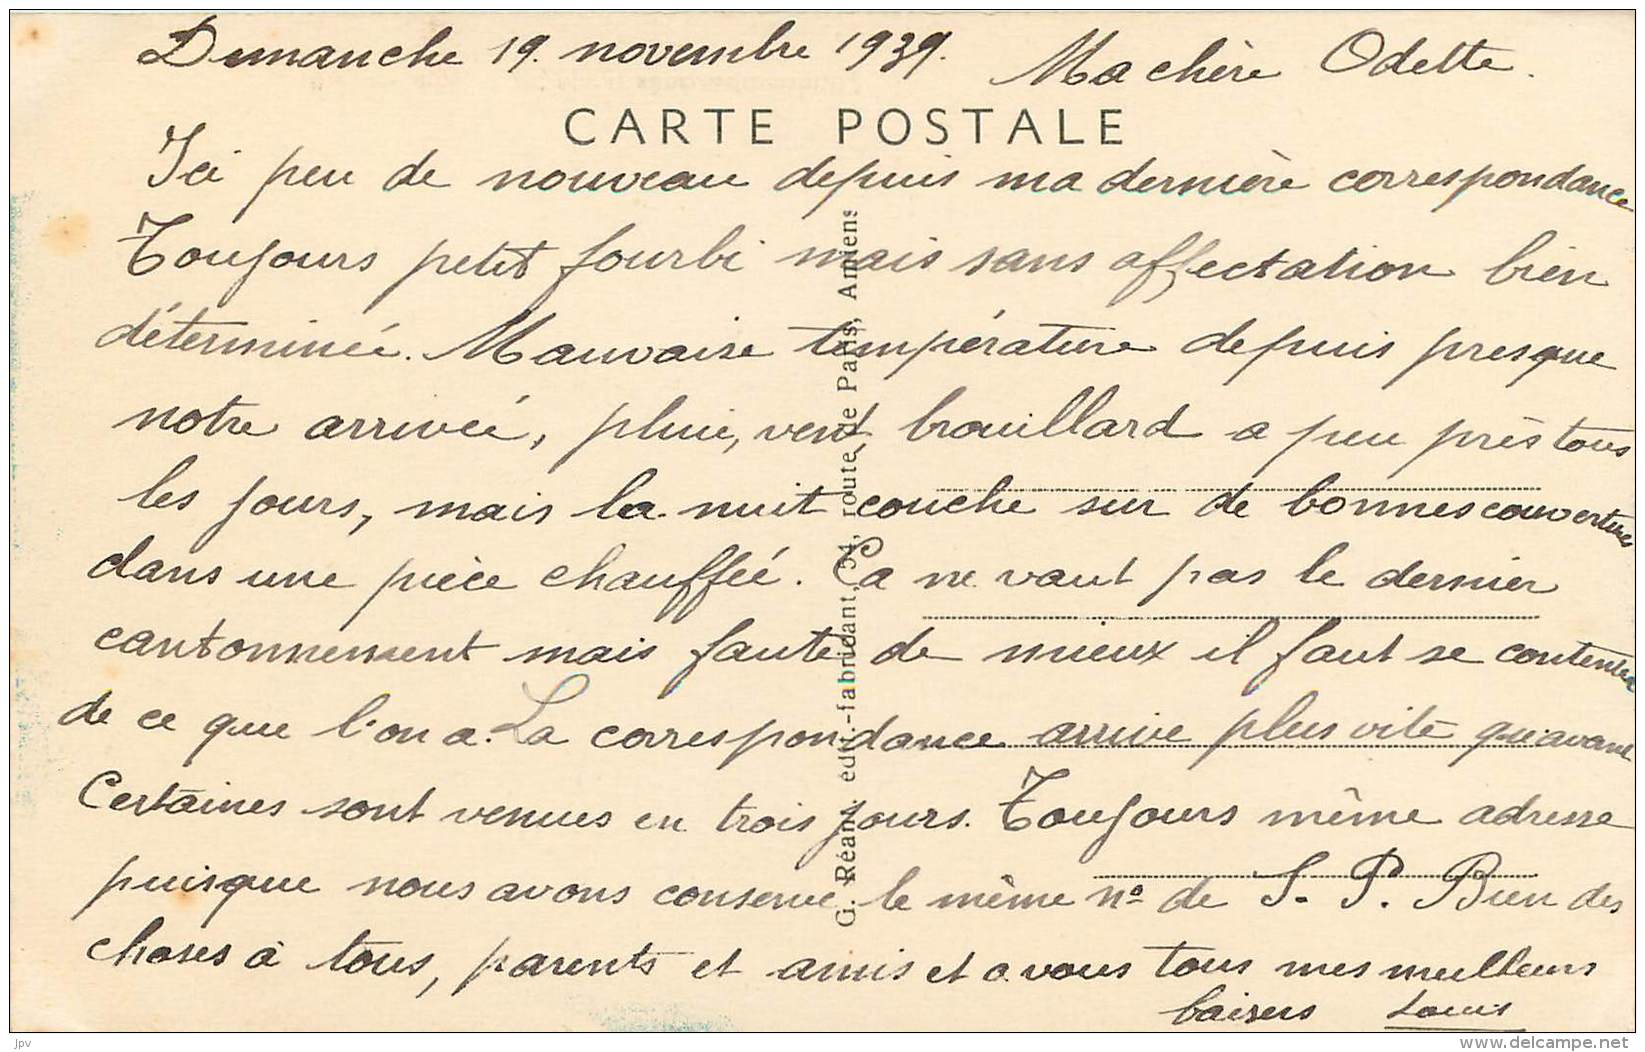 Dimanche 19. novembre 1939. Ma chère Odette.
CARTE POSTALE
Ici peu de nouveau depuis ma dernière correspondance
Toujours petit fourbi mais sans affectation bien
déterminée. Mauvaise température depuis presque
notre arrivée, pluie, vent brouillard a peu près tous
les jours, mais la nuit couche sur de bonnes couvertures
dans une pièce chauffée. Ca ne vaut pas le dernier
cantonnement mais faute de mieux il faut se contenter
de ce que l'on a. La correspondance arrive plus vite qu'avant
Certaines sont venues en trois jours. Toujours même adresse
puisque nous avons conservé le même nº de S. P. Bien des
choses à tous, parents et amis et a vous tous mes meilleurs
baisers Louis
G. Réant, édit.-fabricant, 54, route de Paris, Amiens
jpv
www.delcampe.net